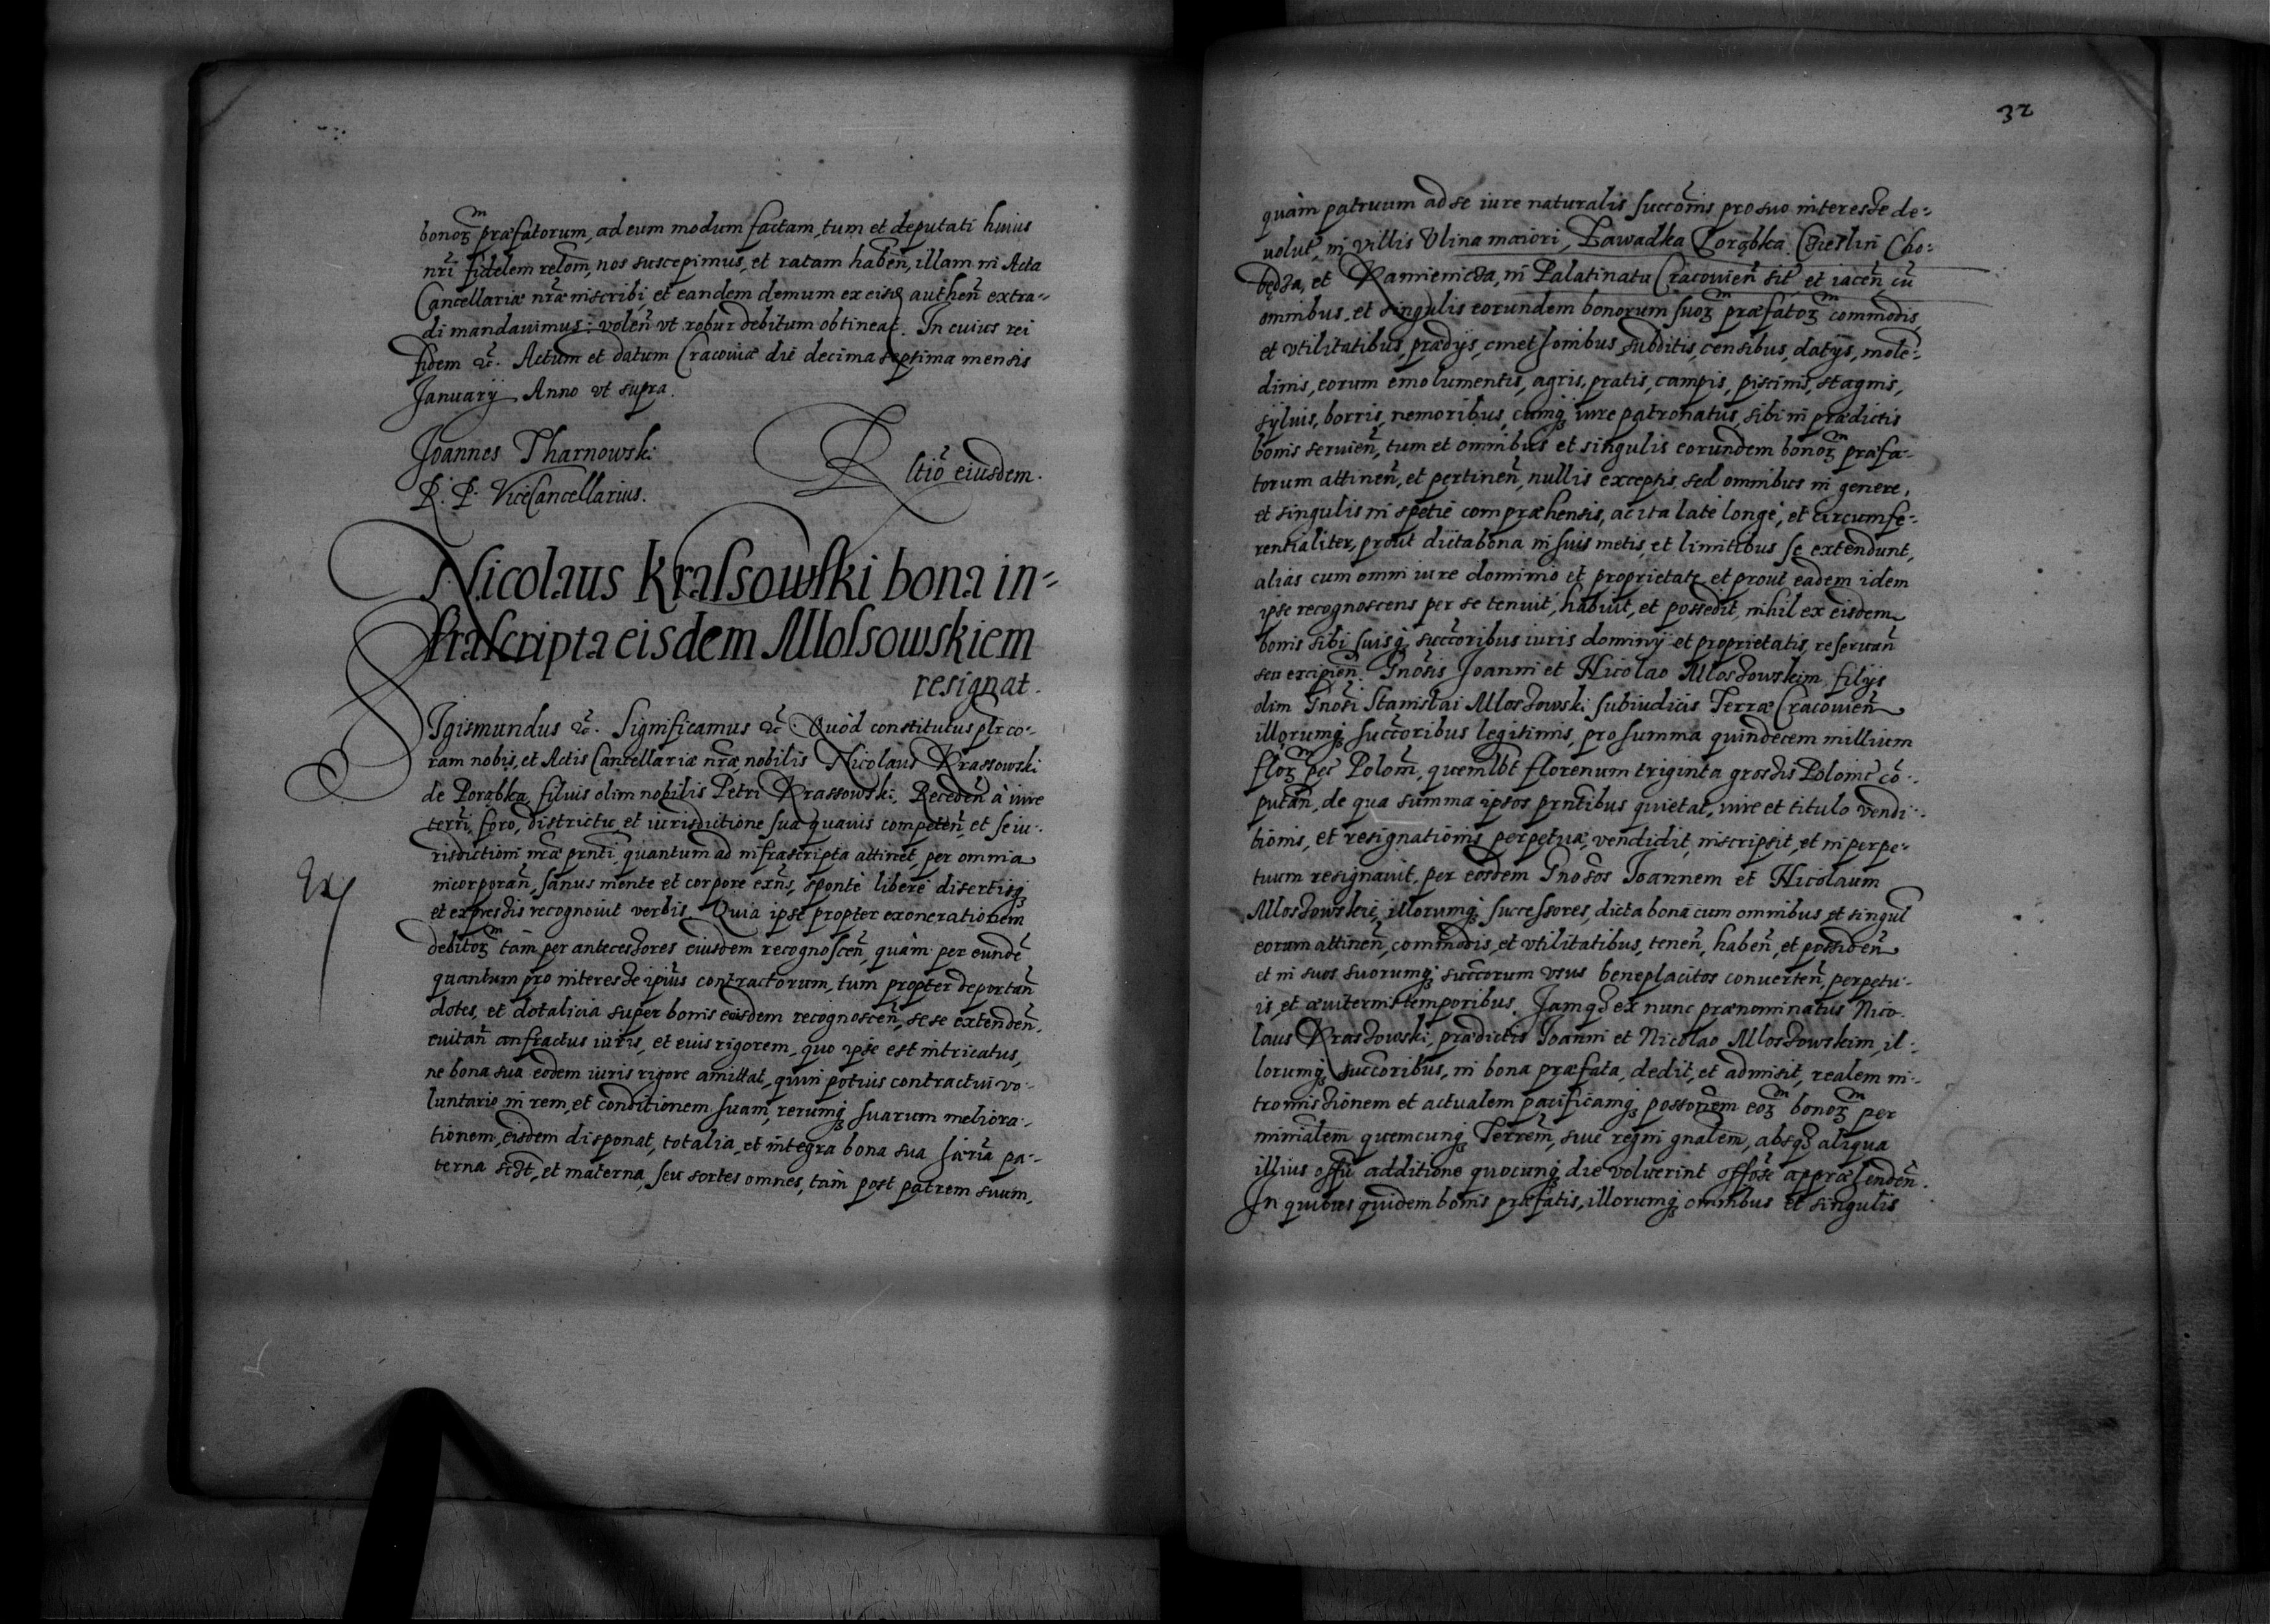 bonoꝝ præfatorum, ad eum modum factam, tum et deputati huius
nr̃i fidelem relom̃, nos suscepimus, et ratam haben̄, illam in Acta
Cancellariæ nr̃æ inscribi, et eandem demum ex eisd authen̄ extra-
di mandauimus: volen̄ vt robur debitum obtineat. In cuius rei
fidem &c̃. Actum et datum Cracouiæ die decima septima mensis
Januarij Anno vt supra.
Joannes Tharnowski
R. P. ViceCancellarius.
Rltiõ eiusdem.
Nicolaus Krassowski bona in-
frascripta eisdem Mlossowskiem
resignat.
SIgismundus &c̃. Significamus &c̃. Quòd constitutus plr̃ co-
ram nobis, et Actis Cancellariæ nr̃æ, nobilis Nicolaus Krassowski
de Porąbka, filius olim nobilis Petri Krassowski, Receden̄ à iure
terrĩ, foro, districtu, et iurisdictione sua quauis competen̄, et se iu-
risdictioni nr̃æ prn̄ti quantum ad infrascripta attinet, per omnia
incorporan̄, sanus mente et corpore exn̄s, sponte libere disertisqꝫ
et expressis recognouit verbis. Quia ipse propter exonerationem
debitoꝝ tàm per antecessores eiusdem recognoscen̄, quàm per eundẽ
quantum pro interesse ipius contractorum, tum propter deportan̄
dotes, et dotalicia super bonis eiusdem recognoscen̄, sese extenden̄.
euitan̄ anfractus iuris, et eius rigorem, quo ipse est intricatus,
ne bona sua eodem iuris rigore amittat, quin potius contractui vo-
luntario in rem, et conditionem suam, rerumqꝫ suarum meliora-
tionem, eisdem disponat, totalia, et integra bona sua hæria pa-
terna scꝫt, et materna, seu sortes omnes, tàm post patrem suum,
32
quàm patruum ad se iure naturalis succoñis pro suo interesse de-
uolut̃, in villis Vlina maiori, Zawadka Porąbka Cieslin Cho-
będza, et Kamienicza, in Palatinatu Cracouien̄ sit̃ et iacen̄, cũ
omnibus, et singulis eorundem bonorum suoꝝ præfatoꝝ commodis
et vtilitatibus, prædijs, cmethonibus, subditis, censibus, datijs, mole-
dinis, eorum emolumentis, agris, pratis, campis, piscinis, stagnis,
syluis, borris, nemoribus, cumqꝫ iure patronatus, sibi in prædictis
bonis seruien̄, tum et omnibus et singulis eorundem bonoꝝ præfa-
torum attinen̄, et pertinen̄, nullis exceptis, sed omnibus in genere,
et singulis in spetie compræhensis, ac ita late longè, et circumfe-
rentialiter, prout dicta bona in suis metis, et limitibus se extendunt,
alias cum omni iure dominio et proprietate, et prout eadem idem
ipse recognoscens per se tenuit, habuit, et possedit, nihil ex eisdem
bonis sibi suisqꝫ succoribus iuris dominij et proprietatis reseruan̄
seu excipien̄. Gnosis Joanni et Nicolao Mlossowskim filijs
olim Gnosi Stanislai Mlossowski Subiudicis Terræ Cracouien̄
illorumqꝫ succoribus legitimis, pro summa quindecem millium
floꝝ pec̃ Polom̃, quemlbt florenum triginta grossis Polonic̃ cõ-
putan̄, de qua summa ipsos prn̄tibus quietat, iure et titulo vendi-
tionis, et resignationis perpetuæ, vendidit, inscripsit, et in perpe-
tuum resignauit, per eosdem Gnosos Joannem et Nicolaum
Mlossowskie, illorumqꝫ successores, dicta bona cum omnibus, et singul̃
eorum attinen̄, commodis, et vtilitatibus, tenen̄, haben̄, et possiden̄
et in suos, suorumqꝫ succorum vsus beneplacitos conuerten̄, perpetu-
is, et æuiternis temporibus. Jamqꝫ ex nunc prænominatus Nico-
laus Krassowski, prædictis Joanni et Nicolao Mlossowskim, il-
lorumqꝫ succoribus, in bona præfata, dedit, et admisit, realem in-
tromissionem et actualem pacificamqꝫ possoñem eoꝝ bonoꝝ per
minĩalem quemcunqꝫ Terrem̃, siue regni gnalem, absqꝫ aliqua
illius offĩi additione quocunqꝫ die voluerint offõse appræhenden̄.
In quibus quidem bonis præfatis, illorumqꝫ omnibus et singulis